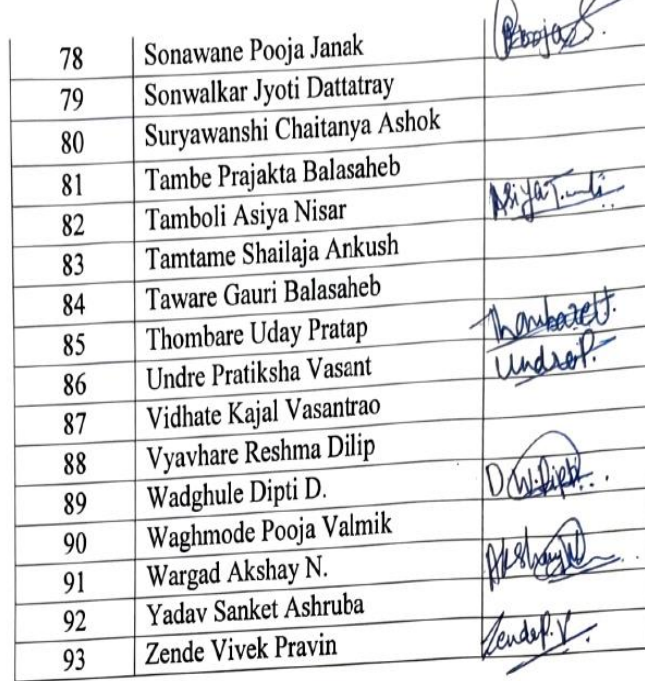 78 Sonawane Pooja Janak PoojaS.
79 Sonwalkar Jyoti Dattatray
80 Suryawanshi Chaitanya Ashok
81 Tambe Prajakta Balasaheb
82 Tamboli Asiya Nisar AsiyaT
83 Tamtame Shailaja Ankush
84 Taware Gauri Balasaheb
85 Thombare Uday Pratap ThombareU.
86 Undre Pratiksha Vasant UndreP.
87 Vidhate Kajal Vasantrao
88 Vyavhare Reshma Dilip
89 Wadghule Dipti D. D.W.Dipti
90 Waghmode Pooja Valmik
91 Wargad Akshay N. Akshay
92 Yadav Sanket Ashruba
93 Zende Vivek Pravin ZendeP.V.